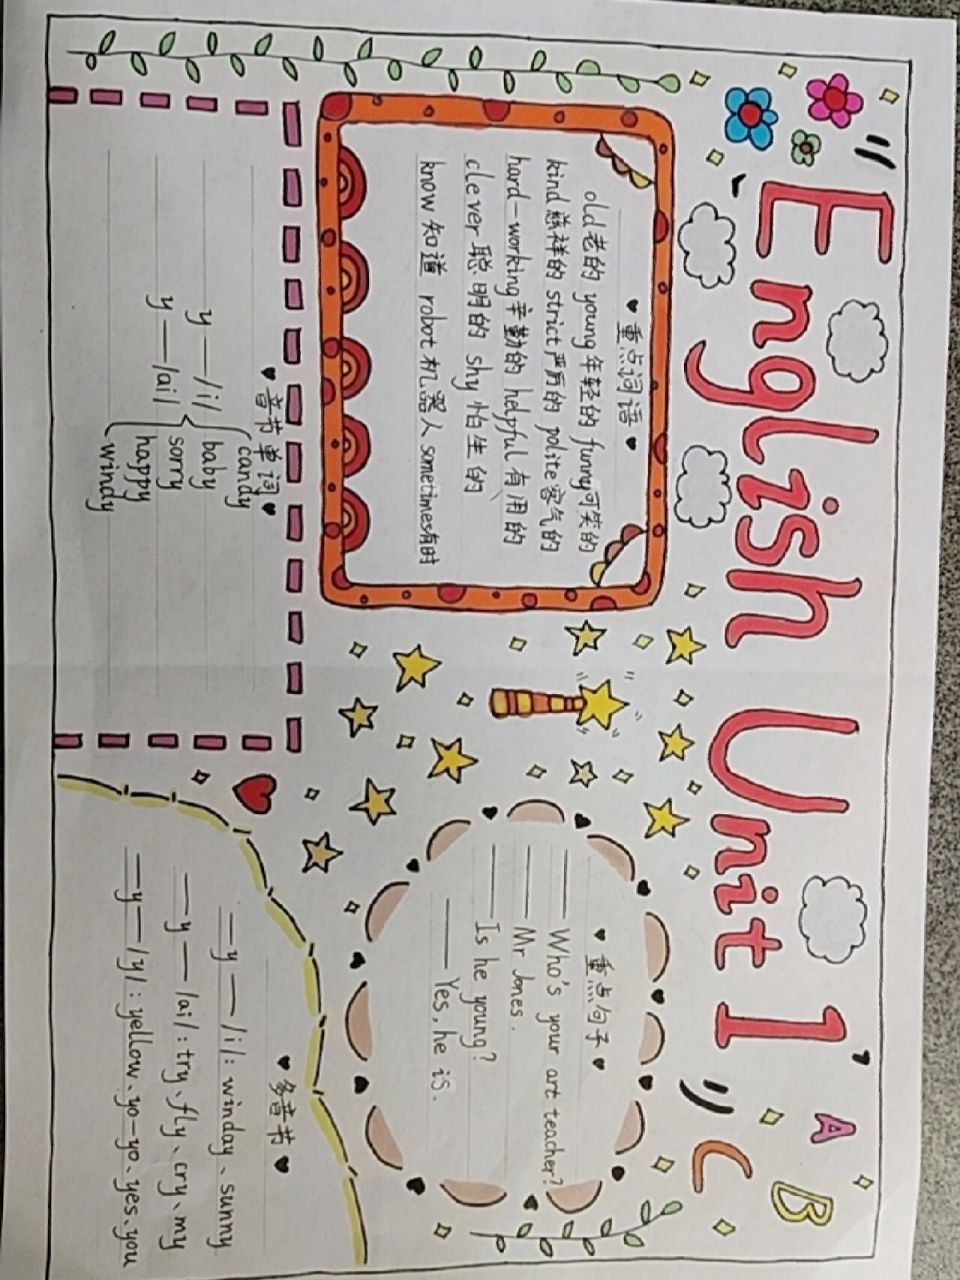 English Unit 1
A
B
C
♥ 重点词语 ♥
old老的 young年轻的 funny可笑的
kind慈祥的 strict严厉的 polite客气的
hard-working辛勤的 helpful有用的
clever聪明的 shy怕生的
know知道 robot机器人 sometimes有时
♥ 重点句子 ♥
——Who's your art teacher?
——Mr Jones.
——Is he young?
——Yes, he is.
♥ 音节单词 ♥
candy
y——/i/ baby
sorry
y——/ai/ happy
windy
♥ 多音节 ♥
—y——/i/: winday、sunny
—y——/ai/: try、fly、cry、my
—y——/y/: yellow、yo-yo、yes、you